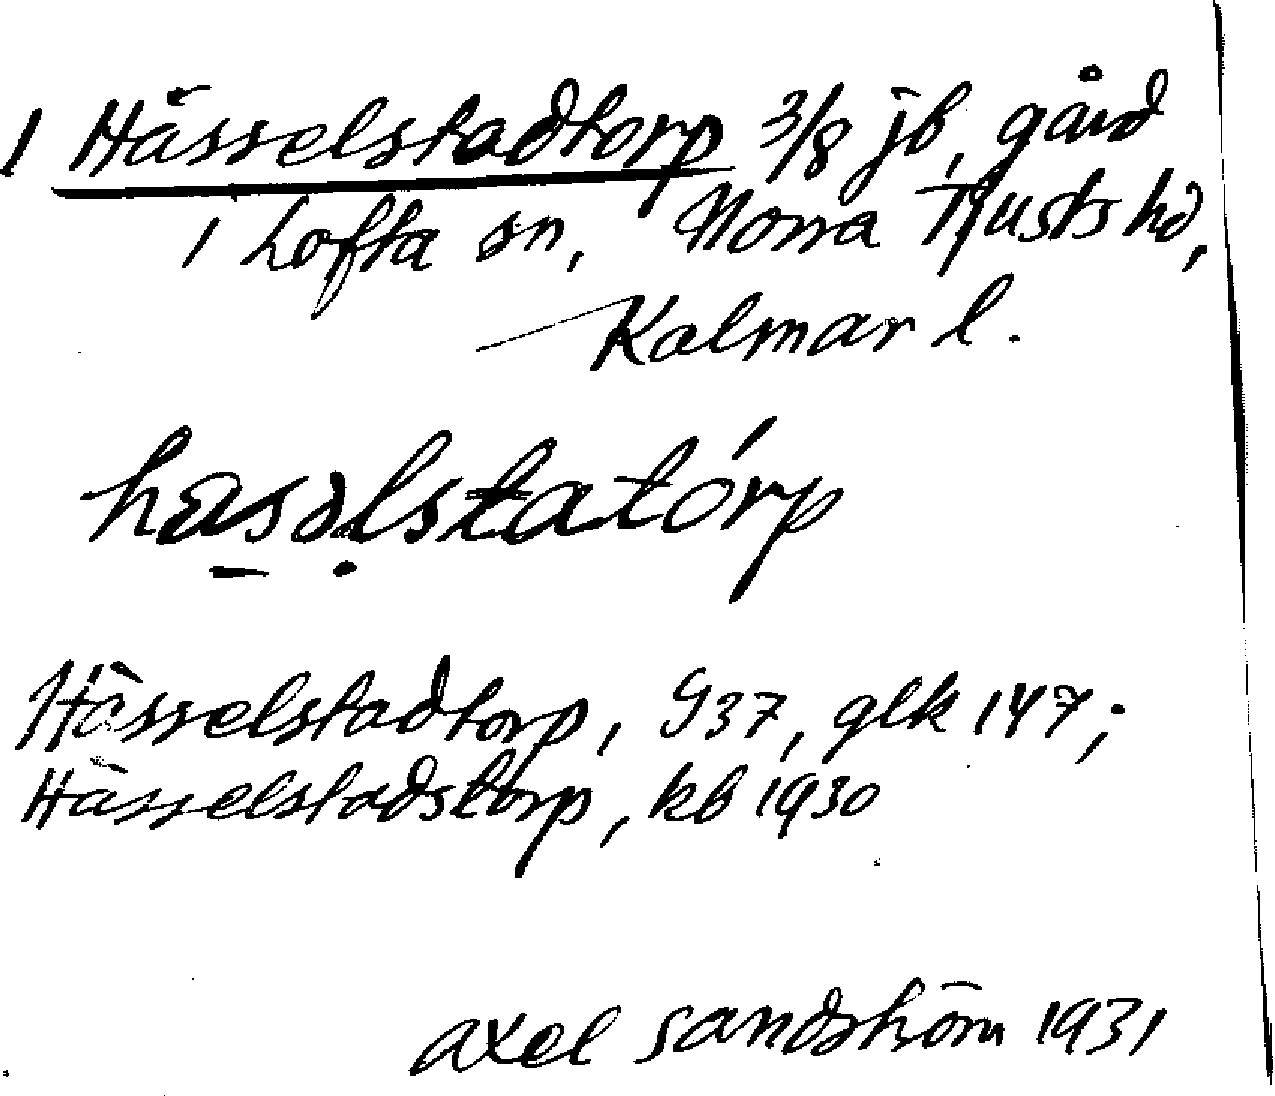 1 Hässelstadtorp 3/8 jb, gård
i Lofta sn, Norra Tjusts hd,
Kalmar l.
hasəlstatórp
Hässelstadtorp, G37, glk 147;
Hässelstadstorp, kb 1930
Axel Sandström 1931